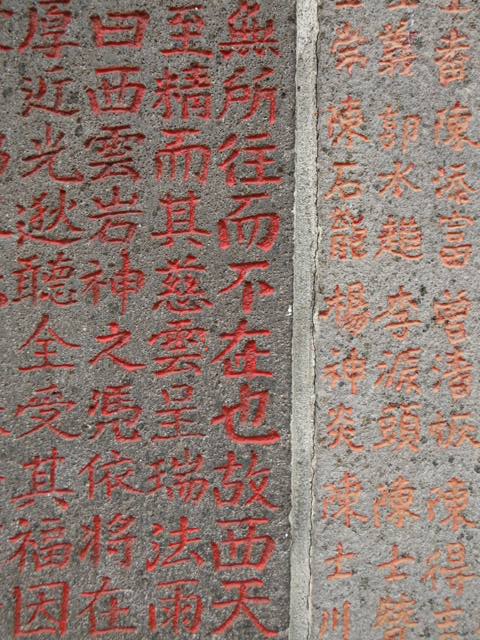 陳塔富 曾清 陳得
義 郭水 李猴頭 陳士
宗 陳石龍 楊神炎 陳士川
無所往而不在也故西天
至精而其慈雲呈瑞法雨
曰西雲岩神之憑依將在
厚近光聽全受其福因